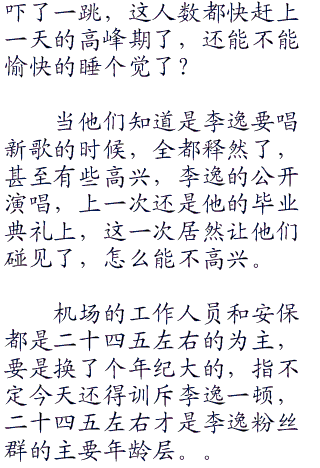 吓了一跳，这人数都快赶上
一天的高峰期了，还能不能
愉快的睡个觉了？
当他们知道是李逸要唱
新歌的时候，全都释然了，
甚至有些高兴，李逸的公开
演唱，上一次还是他的毕业
典礼上，这一次居然让他们
碰见了，怎么能不高兴。
机场的工作人员和安保
都是二十四五左右的为主，
要是换了个年纪大的，指不
定今天还得训斥李逸一顿，
二十四五左右才是李逸粉丝
群的主要年龄层。。